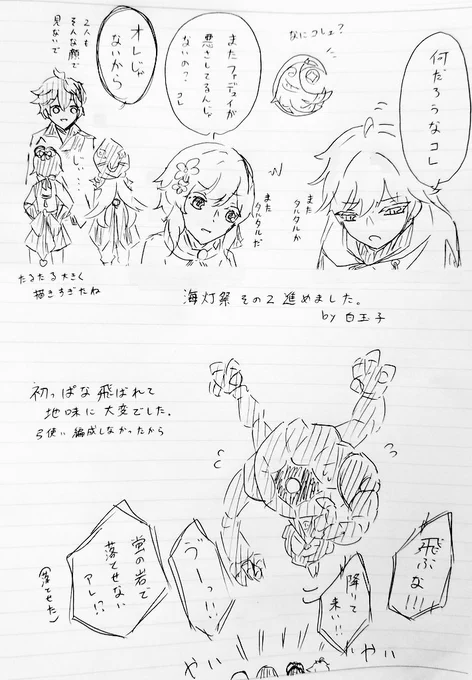 何だろうなコレ
なにコレェ?
またファデュイが
悪さしてるんじゃ
ないの? コレ
また
タルタルか
また
タルタルだ
オレじゃ
ないから
2人も
そんな顔で
見ないで
たるたる大きく
描きすぎたね
海灯祭 その2 進めました。
by 白玉子
初っぱな 飛ばれて
地味に 大変でした。
弓使い 編成しなかったから
飛ぶな!!!
降りて
来い!!
ブーっ!!
蛍の岩で
落てせない
アレ!?
(落てせた)
やい
やい